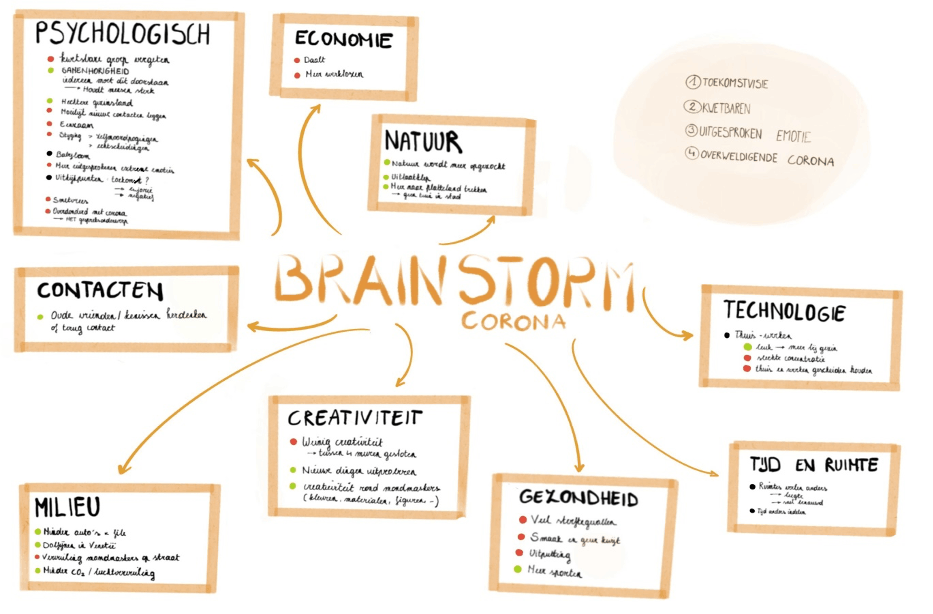 PSYCHOLOGISCH
kwetsbare groep vergeten
SAMENHORIGHEID
iedereen moet dit doorstaan
→ Houdt mensen sterk
Hechtere gezinsband
Moeilijk nieuwe contacten leggen
Eenzaam
Stijging > zelfmoordpogingen
> echtscheidingen
Babyboom
Meer uitgesproken extreme emoties
Uitkijkpunten - toekomst?
→ positief
→ negatief
Smetvrees
Overdonderd met corona
→ HET gespreksonderwerp
ECONOMIE
Daalt
Meer werklozen
NATUUR
Natuur wordt meer opgezocht
Uitlaatklep
Meer naar platteland trekken
→ geen tuin in stad
① TOEKOMSTVISIE
② KWETBAREN
③ UITGESPROKEN EMOTIE
④ OVERWELDIGENDE CORONA
BRAINSTORM
CORONA
CONTACTEN
Oude vrienden / kennissen herdenken
of terug contact
TECHNOLOGIE
Thuis-werken
leuk → meer bij gezin
slechte concentratie
thuis en werken gescheiden houden
CREATIVITEIT
Weinig creativiteit
→ tussen 4 muren gesloten
Nieuwe dingen uitproberen
creativiteit rond mondmaskers
(kleuren, materialen, figuren -)
TIJD EN RUIMTE
Ruimtes voelen anders
→ leegte
→ snel benauwd
Tijd anders indelen
MILIEU
Minder auto's < file
Dolfijnen in Venetië
Vervuiling mondmaskers op straat
Minder CO₂ / luchtvervuiling
GEZONDHEID
Veel sterftegevallen
Smaak en geur kwijt
Uitputting
Meer sporten